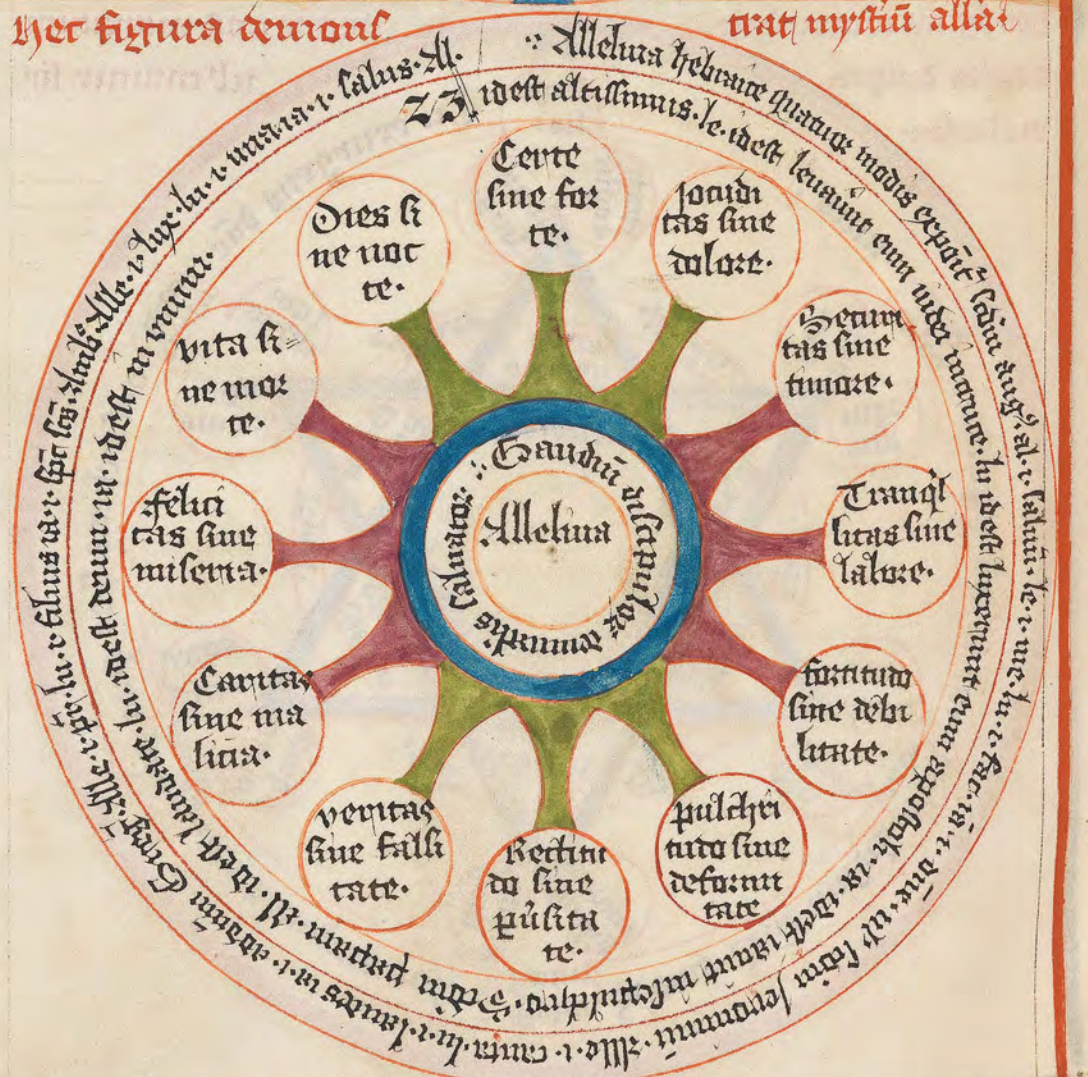 Hec figura demons
trat mystiũ alla
·: Alleluia hebraice quatuor modis expoñt᷑ scdm augꝰ. al. i. saluũ. le. i. me. lu. i. fac. ia. i. dñe. ul' scdm Ieronimũ. Alle. i. canta. lu. i. laudes ia. i. ad dñm Greg. Alle. i. pr̃. lu. i. filius ia. i. sp̃c sc̃s. Alle. i. lux. lu. i. uita. ia. i. salus. Al.
idest altissimus. le. idest leuauit eum in cruce. lu idest lugebant eum apostoli. ia. idest iacuit in sepulchro. Scdm papiam. All. idest laudate. lu. idest deum. ia. idest in unum.
Certe
sine for
te.
Jocũdi
tas sine
dolore.
Securi
tas sine
timore.
Tranqͥl
litas sine
labore.
fortitudo
sine debi
litate.
pulchri
tudo sine
deformi
tate
Rectitu
do sine
puͥsita
te.
veritas
sine falsi
tate.
Caritas
sine ma
licia.
felici
tas sine
miseria.
vita si=
ne mor
te.
Dies si
ne noc
te.
·: Gaudiũ discipuloꝝ
Alleluia